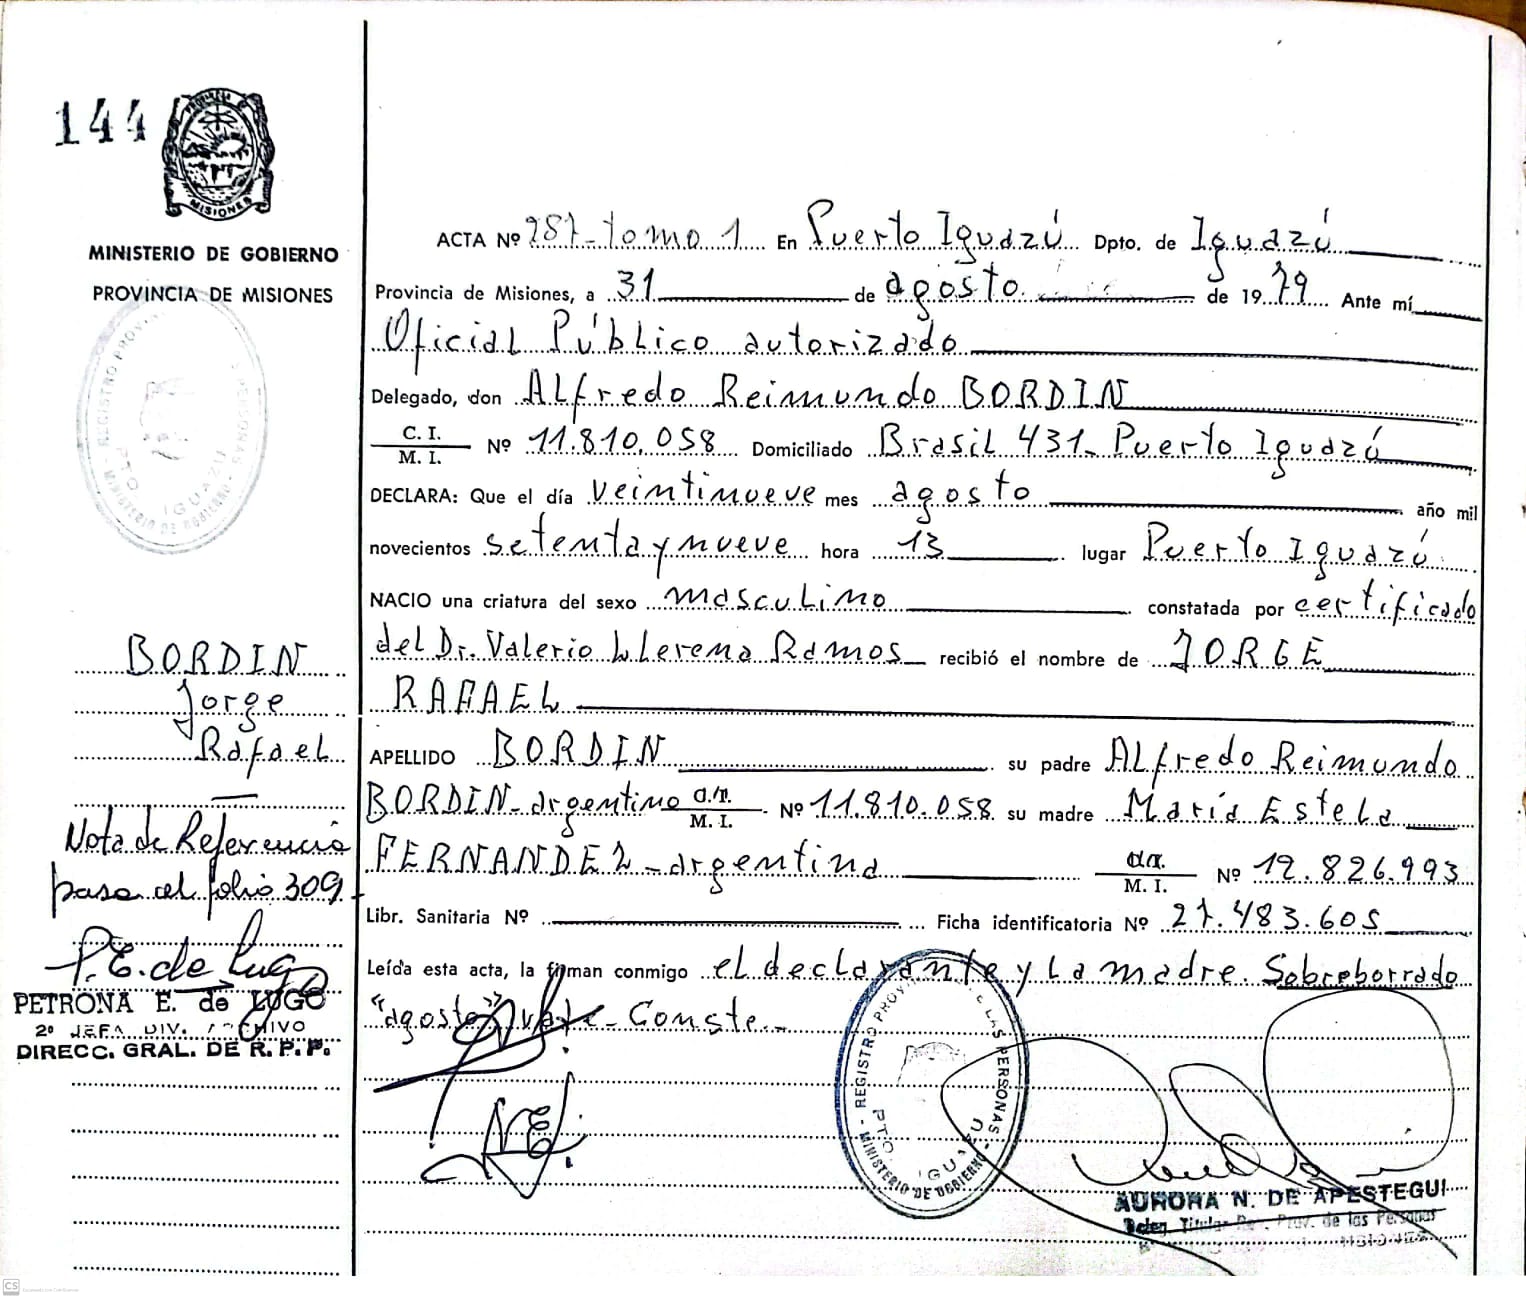 144
PROVINCIA DE
MISIONES
MINISTERIO DE GOBIERNO
PROVINCIA DE MISIONES
REGISTRO PROV
PERSONAS
PTO. IGUAZU
MINISTERIO DE GOBIERNO
BORDIN
Jorge
Rafael
Nota de Referencia
pasa al folio 309.-
P.E. de Lugo
PETRONA E. de LUGO
2º JEFA DIV. ARCHIVO
DIRECC. GRAL. DE R. P. P.
ACTA Nº 287-tomo 1 En Puerto Iguazú Dpto. de Iguazú
Provincia de Misiones, a 31 de agosto de 1979 Ante mí
Oficial Público autorizado
Delegado, don ALfredo Reimundo BORDIN
C. I.
M. I. Nº 11.810.058 Domiciliado Brasil 431- Puerto Iguazú
DECLARA: Que el día veintinueve mes agosto año mil
novecientos setenta y nueve hora 13 lugar Puerto Iguazú
NACIO una criatura del sexo mascuLino constatada por certificado
del Dr. Valerio LLerena Ramos recibió el nombre de JORGE
RAFAEL
APELLIDO BORDIN su padre ALfredo Reimundo
BORDIN-argentino M. I. Nº 11.810.058 su madre María EsteLa
FERNANDEZ-argentina M. I. Nº 12.826.993
Libr. Sanitaria Nº Ficha identificatoria Nº 27.483.605
Leída esta acta, la firman conmigo eL decLarante y La madre. Sobreborrado
"agosto" vale- Conste.-
REGISTRO PROV DE LAS PERSONAS
PTO. IGUAZU
MINISTERIO DE GOBIERNO
AURORA N. DE APESTEGUI
Deleg. Titular Prov. de las Personas
MISIONES
CS